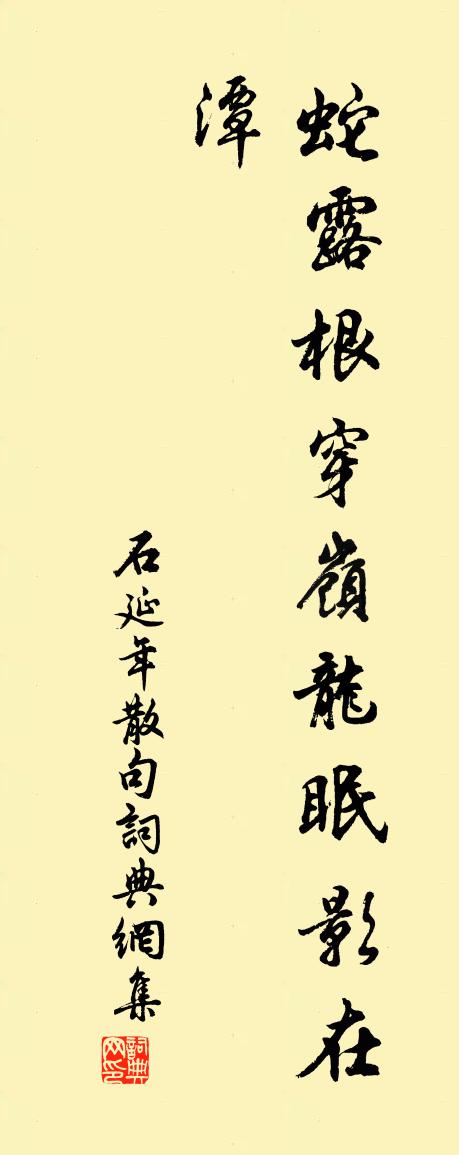 蛇露根穿嶺龍眠影在
潭
石延年散句詞典網集
詞典
网印